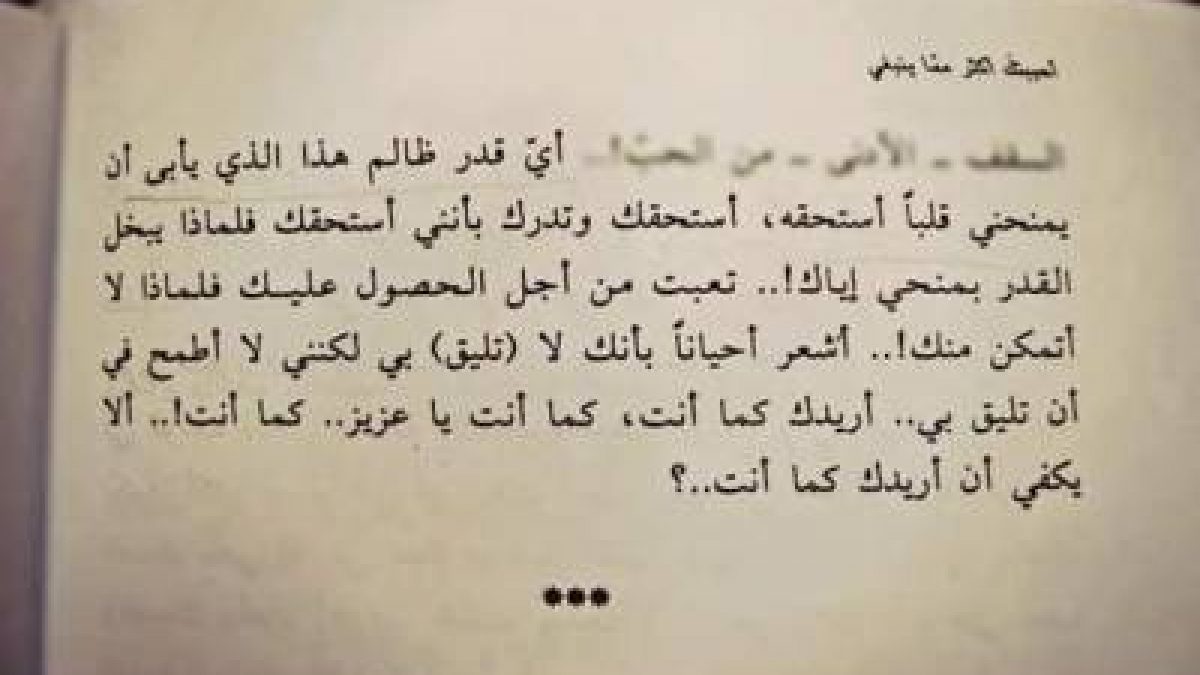 أحببتك أكثر ممّا ينبغي
السقف ـ الأدنى ـ من الحبّ!.. أيّ قدر ظالم هذا الذي يأبى أن
يمنحني قلباً أستحقه، أستحقك وتدرك بأنني أستحقك فلماذا يبخل
القدر بمنحي إياك!.. تعبت من أجل الحصول عليك فلماذا لا
أتمكن منك!.. أشعر أحياناً بأنك لا (تليق) بي لكنني لا أطمح في
أن تليق بي.. أريدك كما أنت، كما أنت يا عزيز.. كما أنت!.. ألا
يكفي أن أريدك كما أنت..؟